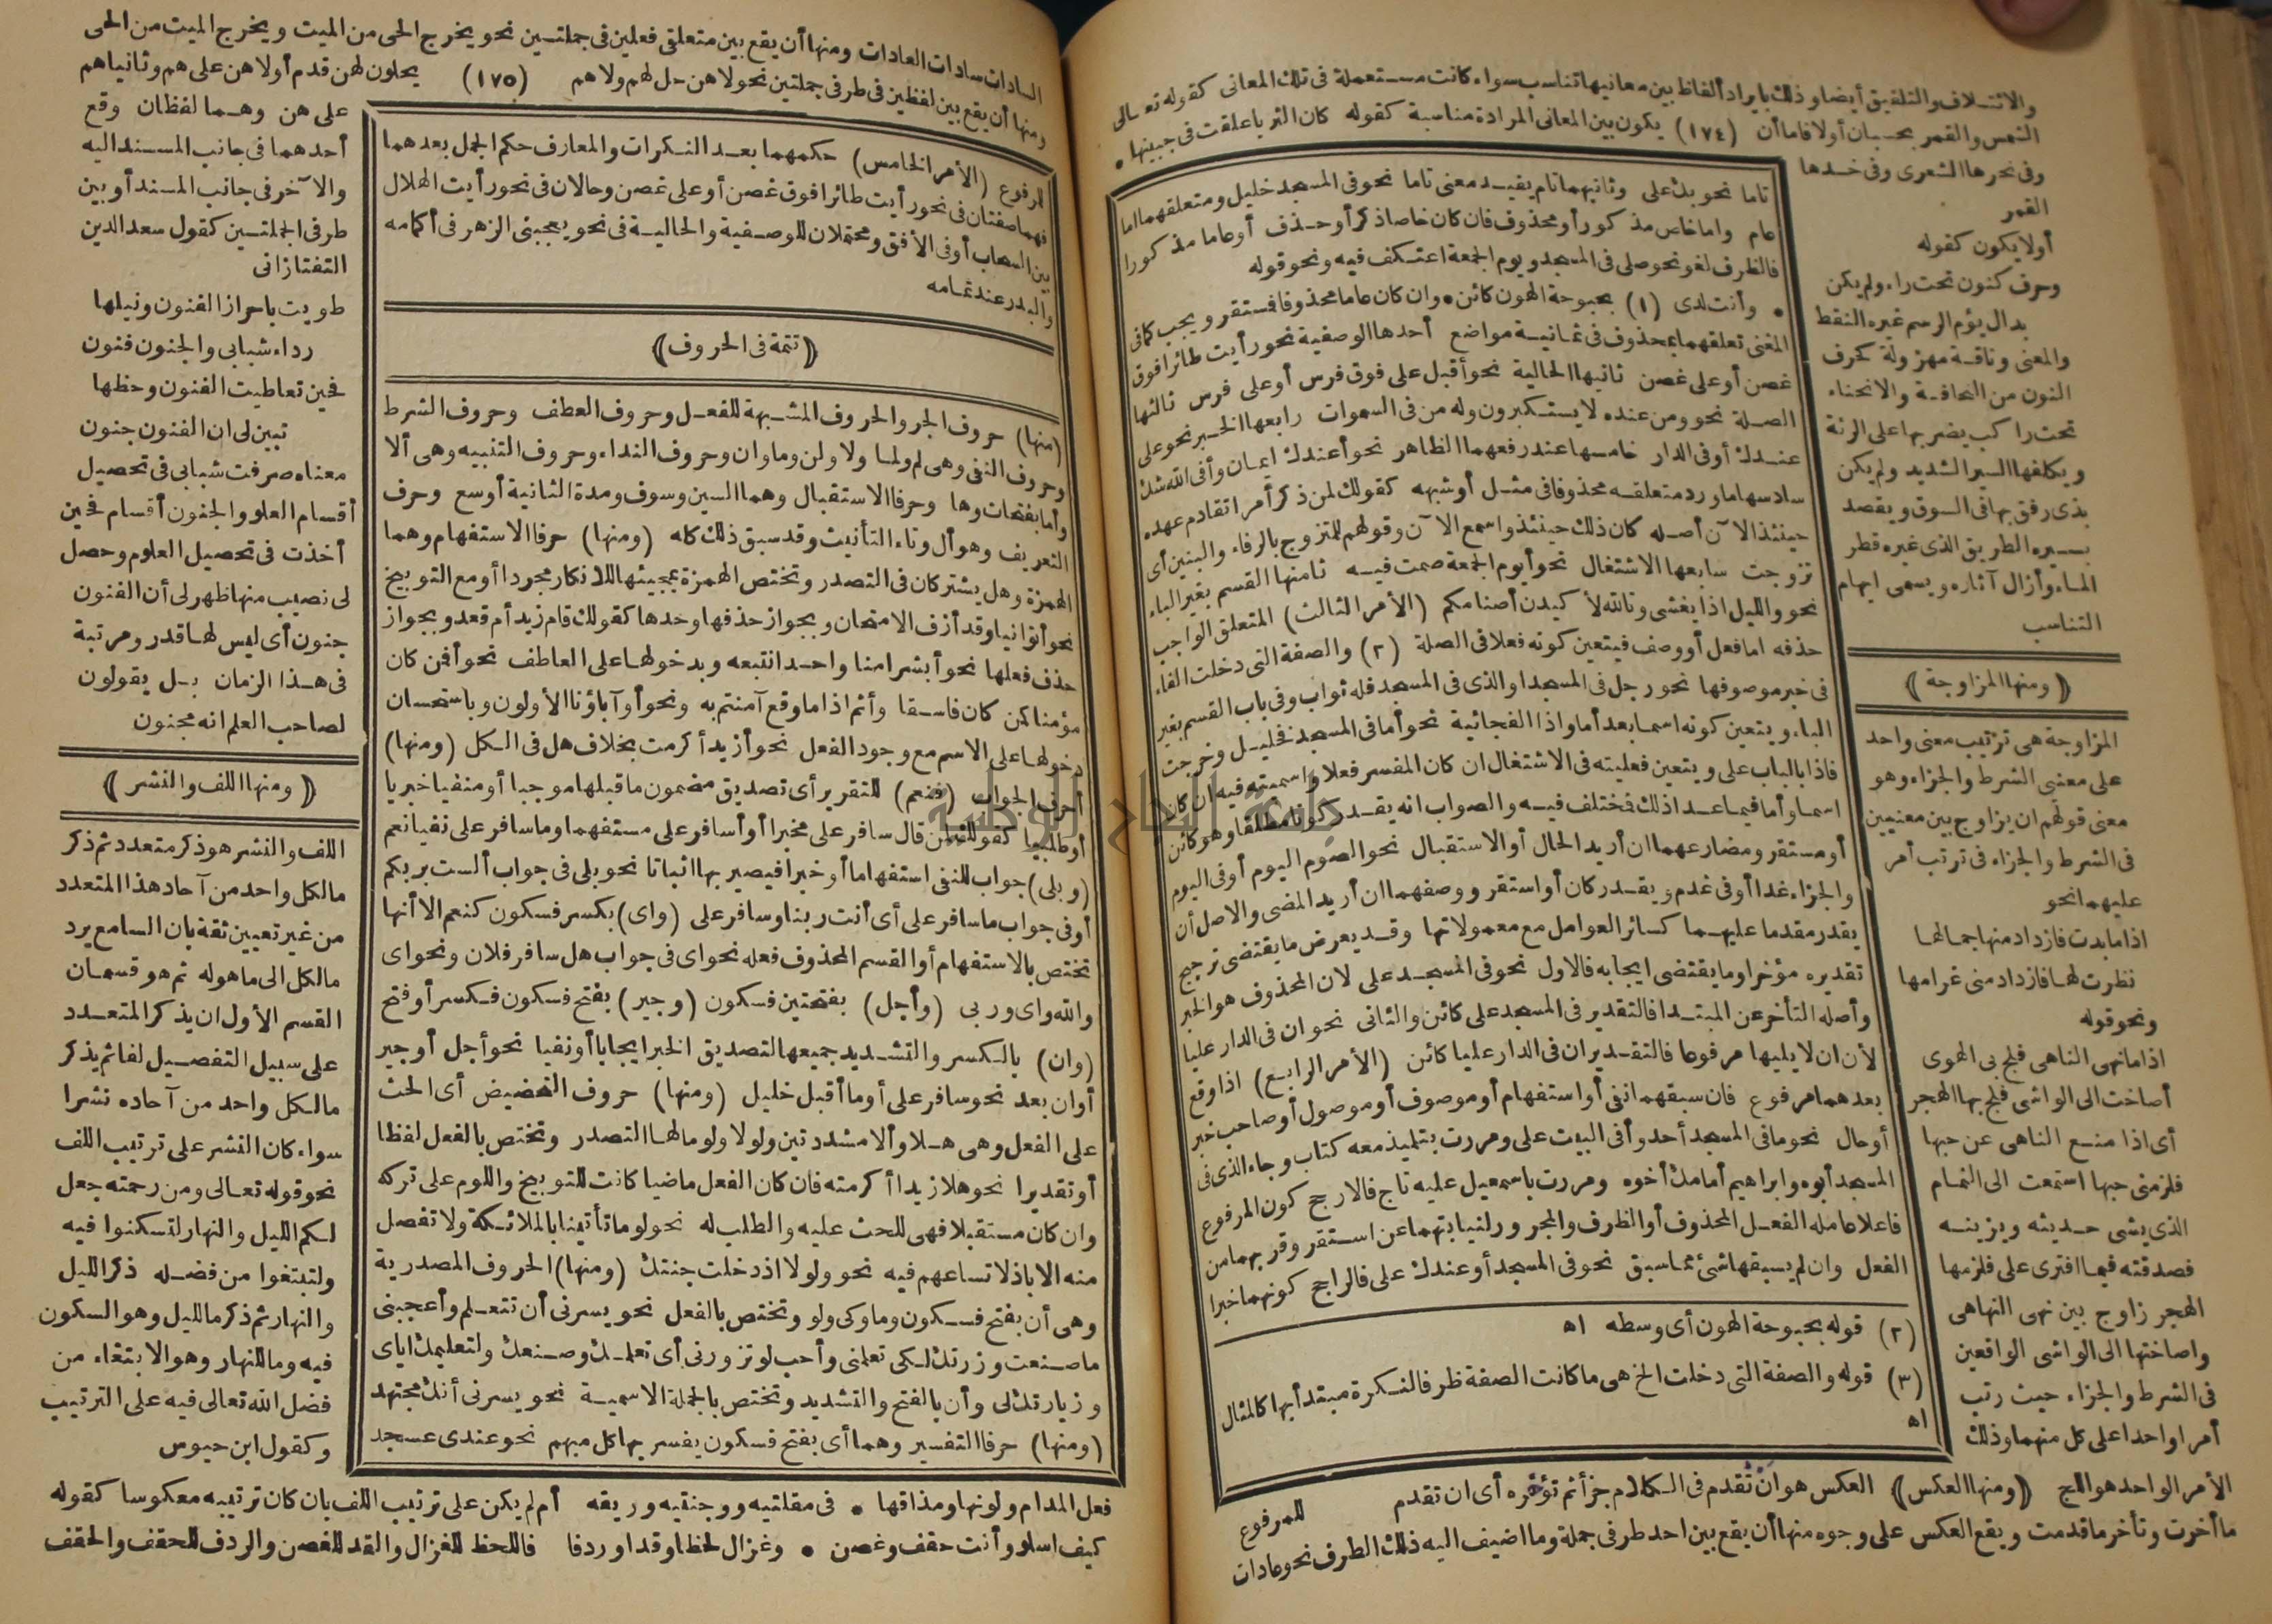 والائتلاف والتلفيق أيضا وذلك بايراد ألفاظ بين معانيها تناسب سواء كانت مستعملة فى تلك المعانى كقوله تعالى
الشمس والقمر بحسبان أولا فاما أن (١٧٤) يكون بين المعانى المرادة مناسبة كقوله كان الثريا علقت فى جبينها •
وفى نحرها الشعرى وفى خدها
القمر
أولا يكون كقوله
وحرف كنون تحت راء ولم يكن
بدال يؤم الرسم غيره النقط
والمعنى وناقة مهزولة كحرف
النون من النحافة والانحناء
تحت راكب يضربها على الرئة
ويكلفها السير الشديد ولم يكن
بذى رفق بها فى السوق ويقصد
بسيره الطريق الذى غيره قطر
الماء وأزال آثاره ويسمى ايهام
التناسب
﴿ ومنها المزاوجة ﴾
المزاوجة هى ترتيب معنى واحد
على معنى الشرط والجزاء وهو
معنى قولهم ان يزاوج بين معنيين
فى الشرط والجزاء فى ترتب أمر
عليهما نحو
اذا ما بدت فازداد منها جمالها
نظرت لها فازداد منى غرامها
ونحو قوله
اذا ما نهى الناهى فلج بى الهوى
أصاخت الى الواشى فلج بها الهجر
أى اذا منع الناهى عن حبها
فلزمنى حبها استمعت الى النمام
الذى يشى حديثه ويزينه
فصدقته فيما افترى على فلزمها
الهجر زاوج بين نهى الناهى
واصاختها الى الواشى الواقعين
فى الشرط والجزاء حيث رتب
أمرا واحدا على كل منهما وذلك
تاما نحو بك على وثانيهما تام يفيد معنى تاما نحو فى المسجد خليل ومتعلقهما اما
عام واما خاص مذكور أو محذوف فان كان خاصا ذكر أو حذف أو عاما مذكورا
فالظرف لغو نحو صلى فى المسجد ويوم الجمعة اعتكف فيه ونحو قوله
• وأنت لدى (١) بحبوحة الهون كائن • وان كان عاما محذوفا فمستقر ويجب كما فى
المغنى تعلقهما بمحذوف فى ثمانية مواضع أحدها الوصفية نحو رأيت طائرا فوق
غصن أو على غصن ثانيها الحالية نحو أقبل على فوق فرس أو على فرس ثالثها
الصلة نحو ومن عنده لا يستكبرون وله من فى السموات رابعها الخبر نحو على
عندك أو فى الدار خامسها عند رفعهما الظاهر نحو أعندك ايمان وأفى الله شك
سادسها ما ورد متعلقه محذوفا فى مثل أو شبهه كقولك لمن ذكر أمرا تقادم عهده
حينئذ الآن أصله كان ذلك حينئذ واسمع الآن وقولهم للمتزوج بالرفاء والبنين أى
تزوجت سابعها الاشتغال نحو أيوم الجمعة صمت فيه ثامنها القسم بغير الباء
نحو والليل اذا يغشى وتالله لأكيدن أصنامكم (الأمر الثالث) المتعلق الواجب
حذفه اما فعل أو وصف فيتعين كونه فعلا فى الصلة (٢) والصفة التى دخلت الفاء
فى خبر موصوفها نحو رجل فى المسجد او الذى فى المسجد فله ثواب وفى باب القسم بغير
الباء ويتعين كونه اسما بعد أما واذا الفجائية نحو أما فى المسجد فخليل وخرجت
فاذا بالباب على ويتعين فعليته فى الاشتغال ان كان المفسر فعلا واسميته فيه ان كان
اسما وأما فيما عدا ذلك فمختلف فيه والصواب انه يقدر كونا مطلقا وهو كائن
أو مستقر ومضارعهما ان أريد الحال أو الاستقبال نحو الصوم اليوم أو فى اليوم
والجزاء غدا أو فى غد ويقدر كان أو استقر ووصفهما ان أريد المضى والاصل أن
يقدر مقدما عليهما كسائر العوامل مع معمولاتها وقد يعرض ما يقتضى ترجيح
تقديره مؤخرا وما يقتضى ايجابه فالاول نحو فى المسجد على لان المحذوف هو الخبر
وأصله التأخر عن المبتدا فالتقدير فى المسجد على كائن والثانى نحو ان فى الدار عليا
لأن ان لا يليها مرفوعا فالتقدير ان فى الدار عليا كائن (الأمر الرابع) اذا وقع
بعدهما مرفوع فان سبقهما نفى أو استفهام أو موصوف أو موصول أو صاحب خبر
أو حال نحو ما فى المسجد أحد وأفى البيت على ومررت بتلميذ معه كتاب وجاء الذى فى
المسجد أبوه وابراهيم أمامك أخوه ومررت باسمعيل عليه تاج فالارجح كون المرفوع
فاعلا عامله الفعل المحذوف أو الظرف والمجرور لنيابتهما عن استقر وقربهما من
الفعل وان لم يسبقهما شئ مما سبق نحو فى المسجد أو عندك على فالراجح كونهما خبرا
(٢) قوله بحبوحة الهون أى وسطه اه
(٣) قوله والصفة التى دخلت الخ هى ما كانت الصفة ظرفا لنكرة مبتدأ بها كالمثال
اه
الأمر الواحد هو اللج ﴿ ومنها العكس ﴾ العكس هو ان تقدم فى الكلام جزأ ثم تؤخره أى ان تقدم
ما أخرت وتأخر ما قدمت ويقع العكس على وجوه منها أن يقع بين احد طرفى جملة وما اضيف اليه ذلك الطرف نحو عادات
للمرفوع
السادات سادات العادات ومنها أن يقع بين متعلقى فعلين فى جملتين نحو يخرج الحى من الميت ويخرج الميت من الحى
ومنها أن يقع بين لفظين فى طرفى جملتين نحو لا هن حل لهم ولا هم (١٧٥) يحلون لهن قدم أولا هن على هم وثانيا هم
للمرفوع (الأمر الخامس) حكمهما بعد النكرات والمعارف حكم الجمل بعدهما
فهما صفتان فى نحو رأيت طائرا فوق غصن أو على غصن وحالان فى نحو رأيت الهلال
بين السحاب أو فى الأفق ومحتملان للوصفية والحالية فى نحو يعجبنى الزهر فى أكمامه
والبدر عند تمامه
﴿ تتمة فى الحروف ﴾
(منها) حروف الجر والحروف المشبهة للفعل وحروف العطف وحروف الشرط
وحروف النفى وهى لم ولما ولا ولن وما وان وحروف النداء وحروف التنبيه وهى ألا
وأما بفتحات وها وحرفا الاستقبال وهما السين وسوف ومدة الثانية أوسع وحرف
التعريف وهو أل وتاء التأنيث وقد سبق ذلك كله (ومنها) حرفا الاستفهام وهما
الهمزة وهل يشتركان فى التصدر وتختص الهمزة بمجيئها للانكار مجردا أو مع التوبيخ
نحو أتوانيا وقد أزف الامتحان وبجواز حذفها وحدها كقولك قام زيد أم قعد وبجواز
حذف فعلها نحو أبشرا منا واحدا نتبعه وبدخولها على العاطف نحو أفمن كان
مؤمنا كمن كان فاسقا وأثم اذا ما وقع آمنتم به ونحو أو آباؤنا الأولون وباستحسان
دخولها على الاسم مع وجود الفعل نحو أزيدا أكرمت بخلاف هل فى الكل (ومنها)
أحرف الجواب (فنعم) للتقرير أى تصديق مضمون ما قبلها موجبا أو منفيا خبريا
أو طلبيا كقولك لمن قال سافر على مخبرا أو أسافر على مستفهما وما سافر على نفيا نعم
(وبلى) جواب للنفى استفهاما أو خبرا فيصير بها اثباتا نحو بلى فى جواب ألست بربكم
أو فى جواب ما سافر على أى أنت ربنا وسافر على (واى) بكسر فسكون كنعم الا أنها
تختص بالاستفهام أو القسم المحذوف فعله نحو اى فى جواب هل سافر فلان ونحو اى
والله واى وربى (وأجل) بفتحتين فسكون (وجير) بفتح فسكون فكسر أو فتح
(وان) بالكسر والتشديد جميعها لتصديق الخبر ايجابا أو نفيا نحو أجل أو جير
أو ان بعد نحو سافر على أو ما أقبل خليل (ومنها) حروف التحضيض أى الحث
على الفعل وهى هلا وألا مشددتين ولولا ولوما لها التصدر وتختص بالفعل لفظا
أو تقديرا نحو هلا زيدا أكرمته فان كان الفعل ماضيا كانت للتوبيخ واللوم على تركه
وان كان مستقبلا فهى للحث عليه والطلب له نحو لوما تأتينا بالملائكة ولا تفصل
منه الا باذ لاتساعهم فيه نحو ولولا اذ دخلت جنتك (ومنها) الحروف المصدرية
وهى أن بفتح فسكون وما وكى ولو وتختص بالفعل نحو يسرنى أن تتعلم وأعجبنى
ما صنعت وزرتك لكى تعلمنى وأحب لو تزورنى أى تعلمك وصنعك ولتعليمك اياى
وزيارتك لى وأن بالفتح والتشديد وتختص بالجملة الاسمية نحو يسرنى أنك مجتهد
(ومنها) حرفا التفسير وهما أى بفتح فسكون يفسر بها كل مبهم نحو عندى عسجد
على هن وهما لفظان وقع
أحدهما فى جانب المسند اليه
والآخر فى جانب المسند أو بين
طرفى الجملتين كقول سعد الدين
التفتازانى
طويت باحراز الفنون ونيلها
رداء شبابى والجنون فنون
فحين تعاطيت الفنون وحظها
تبين لى ان الفنون جنون
معناه صرفت شبابى فى تحصيل
أقسام العلو والجنون أقسام فحين
أخذت فى تحصيل العلوم وحصل
لى نصيب منها ظهر لى أن الفنون
جنون أى ليس لها قدر ومرتبة
فى هذا الزمان بل يقولون
لصاحب العلم انه مجنون
﴿ ومنها اللف والنشر ﴾
اللف والنشر هو ذكر متعدد ثم ذكر
ما لكل واحد من آحاد هذا المتعدد
من غير تعيين ثقة بان السامع يرد
ما لكل الى ما هو له ثم هو قسمان
القسم الأول ان يذكر المتعدد
على سبيل التفصيل لفا ثم يذكر
ما لكل واحد من آحاده نشرا
سواء كان النشر على ترتيب اللف
نحو قوله تعالى ومن رحمته جعل
لكم الليل والنهار لتسكنوا فيه
ولتبتغوا من فضله ذكر الليل
والنهار ثم ذكر ما لليل وهو السكون
فيه وما للنهار وهو الابتغاء من
فضل الله تعالى فيه على الترتيب
وكقول ابن حيوس
فعل المدام ولونها ومذاقها • فى مقلتيه ووجنتيه وريقه أم لم يكن على ترتيب اللف بان كان ترتيبه معكوسا كقوله
كيف اسلو وأنت حقف وغصن • وغزال لحظا وقدا وردفا فاللحظ للغزال والقد للغصن والردف للحقف والحقف
جامعة النجاح الوطنية